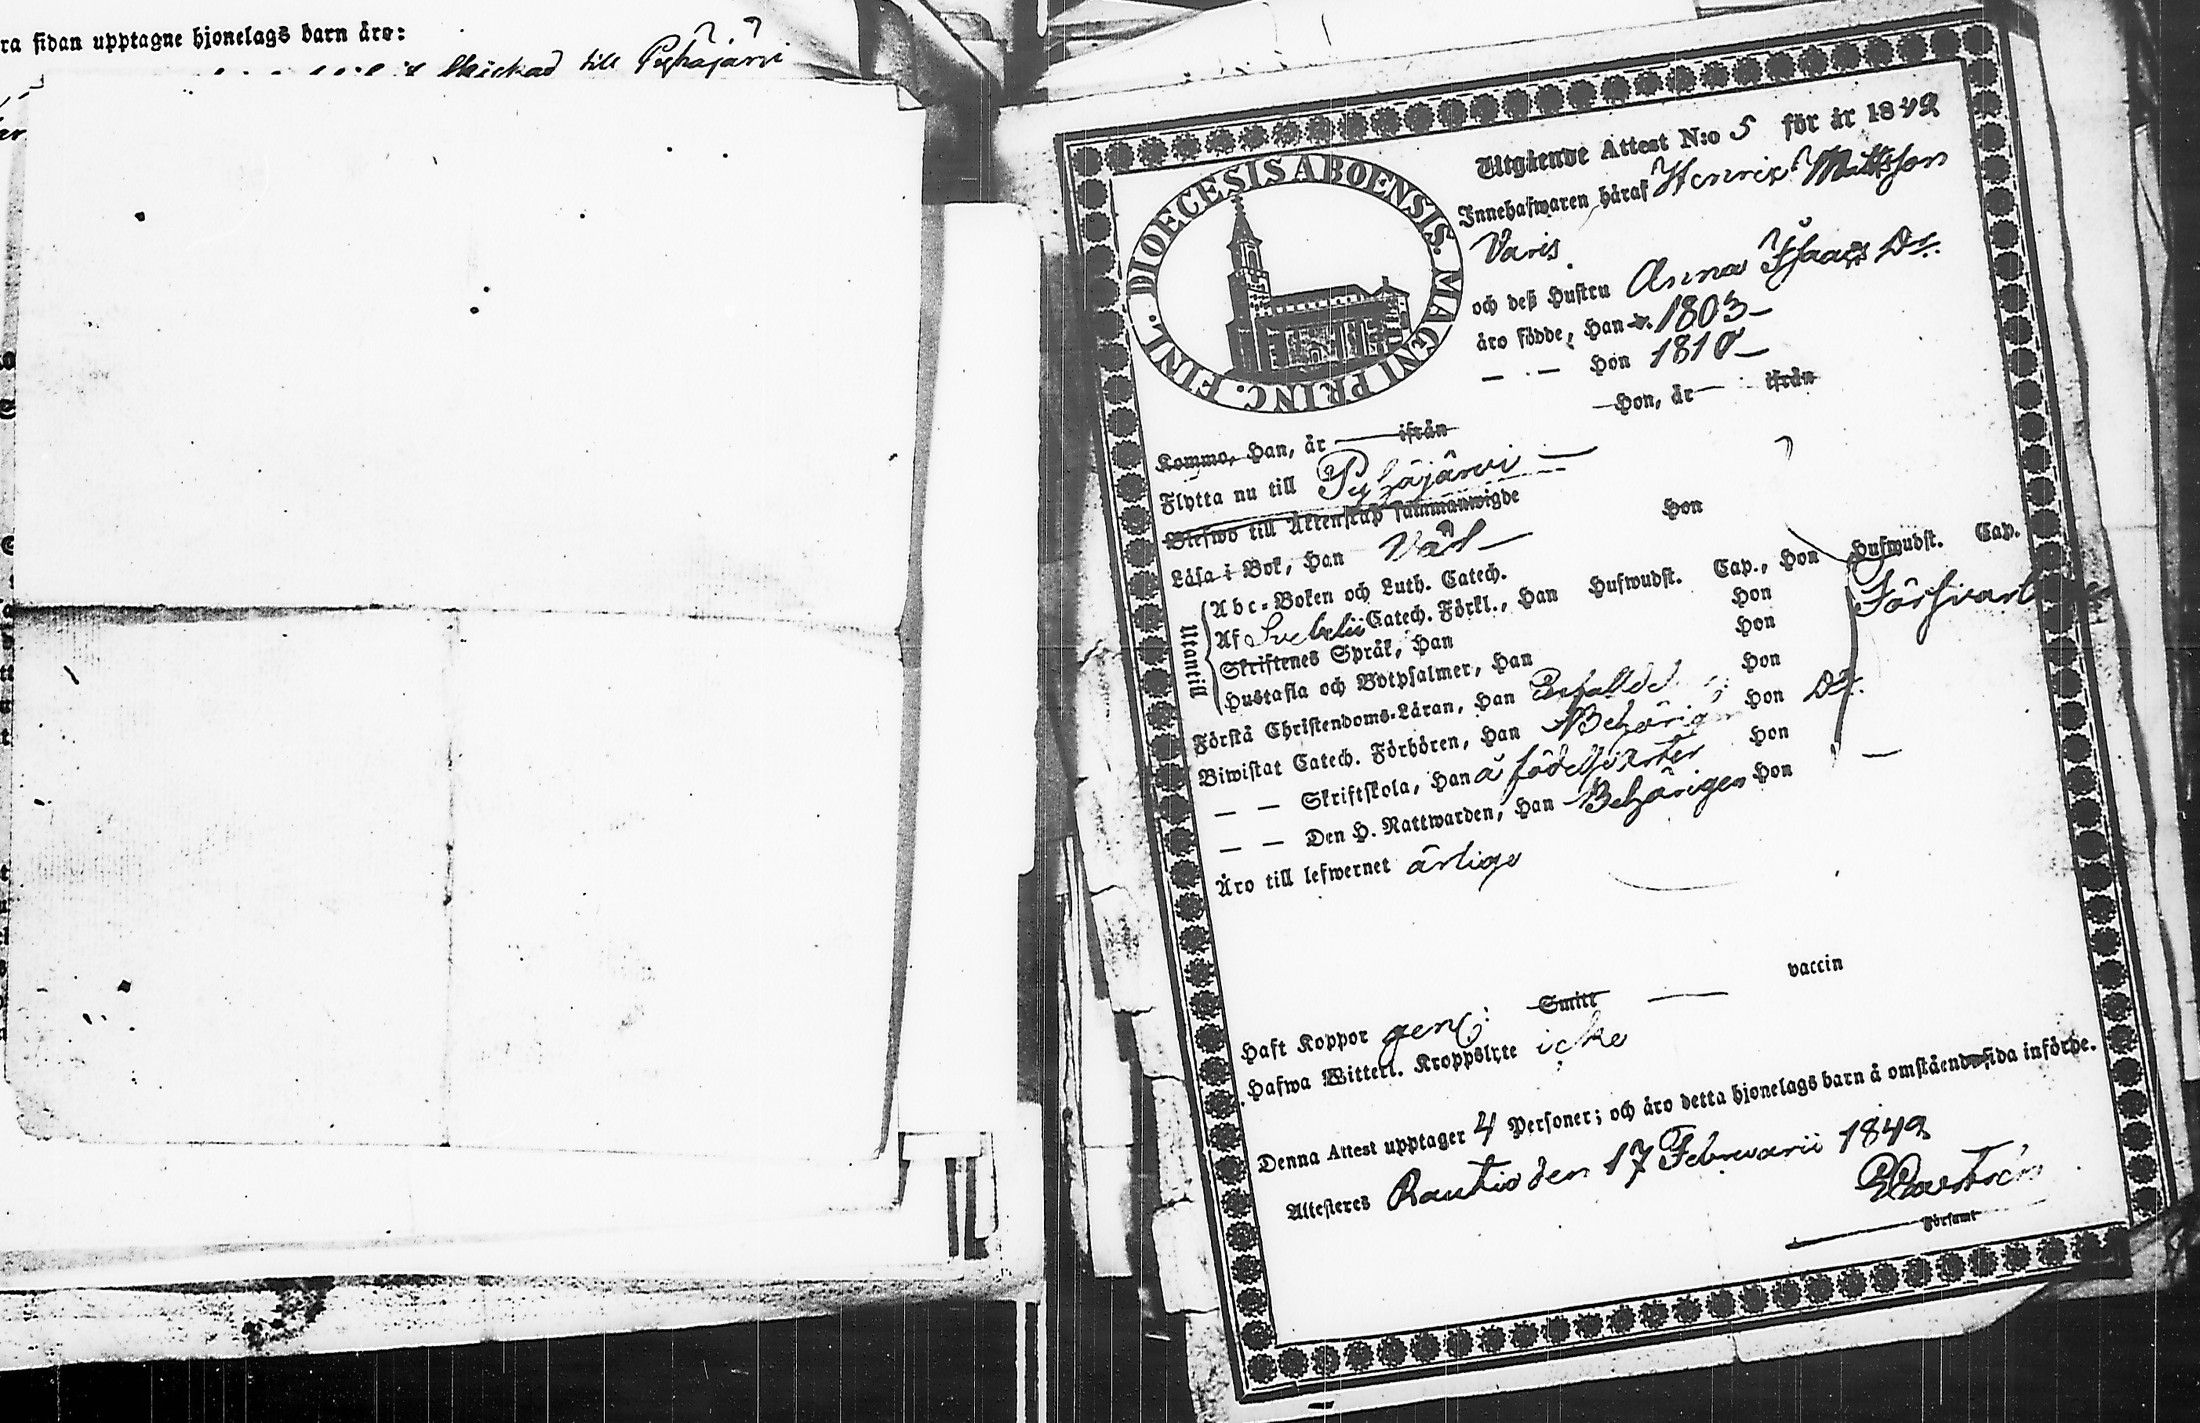 ra sidan upptagne hjonelags barn äro:
skickad till Pyhäjärvi
DIOECESIS ABOENSIS. MAGNI PRINC. FINL.
Utgående Attest N:o 5 för år 1842
Innehafwaren häraf Henric Mattsson
Varis
och deß Hustru Anna Isaacs Dr.
äro födde, Han 1803-
— . — Hon 1810-
Hon, år — ifrån
Kommo, Han, år — ifrån
Flytta nu till Pyhäjärvi —
Blefwo till Äktenskap sammanwigde
Läsa i Bok, Han Väl — Hon
Utantill
Abc-Boken och Luth. Catech.
Af Svebelii Catech. Förkl., Han Hufwudst. Cap., Hon Hufwudst. Cap.
Skriftenes Språk, Han Hon Försvarl
Hustafla och Botpsalmer, Han Hon
Förstå Christendoms-Läran, Han Hon
Biwistat Catech. Förhören, Han Behörig Hon Do.
— — Skriftskola, Han å födelseorten Hon
— — Den H. Nattwarden, Han Behörigen Hon —
Äro till lefwernet ärliga
Haft Koppor Smitt — vaccin
Hafwa Witterl. Kroppslyte icke
Denna Attest upptager 4 Personer; och äro detta hjonelags barn å omstående sida införde.
Attesteres Rautio den 17 Februarii 1842
Församl